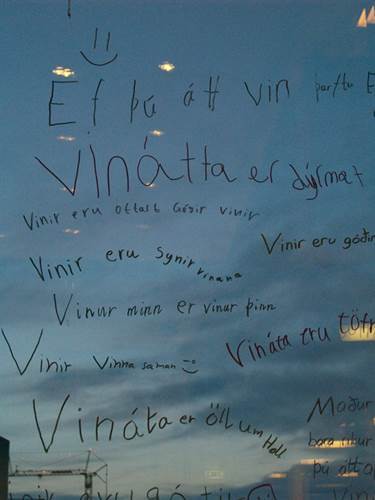 Ef þú átt vin þarftu E
Vinátta er dýrmæt
Vinir eru oftast góðir vinir
Vinir eru góðir
Vinir eru synir vinana
Vinur minn er vinur þinn
Vináta eru töfr
Vinir vinna saman
Vináta er öll um Holl
Maður
bara
þú átt